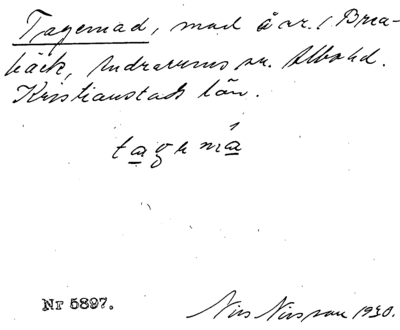 Tagemad, mad å nr. 1 Brea-
bäck, Andrarums sn. Albo hd.
Kristianstads län.
tagemá
Nr 5897.
Nils Nilsson 1930.